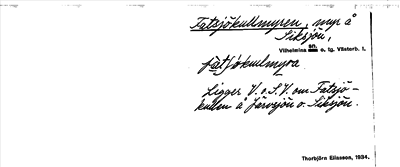 Fatsjökullmyren, myr å
Siksjön,
Vilhelmina sn. o. tg. Västerb. l.
fa͡tʃökulmyra
Ligger V. o. S.V. om Fatsjö-
kullen å Järvsjön o. Siksjön.
Thorbjörn Eliasson, 1934.